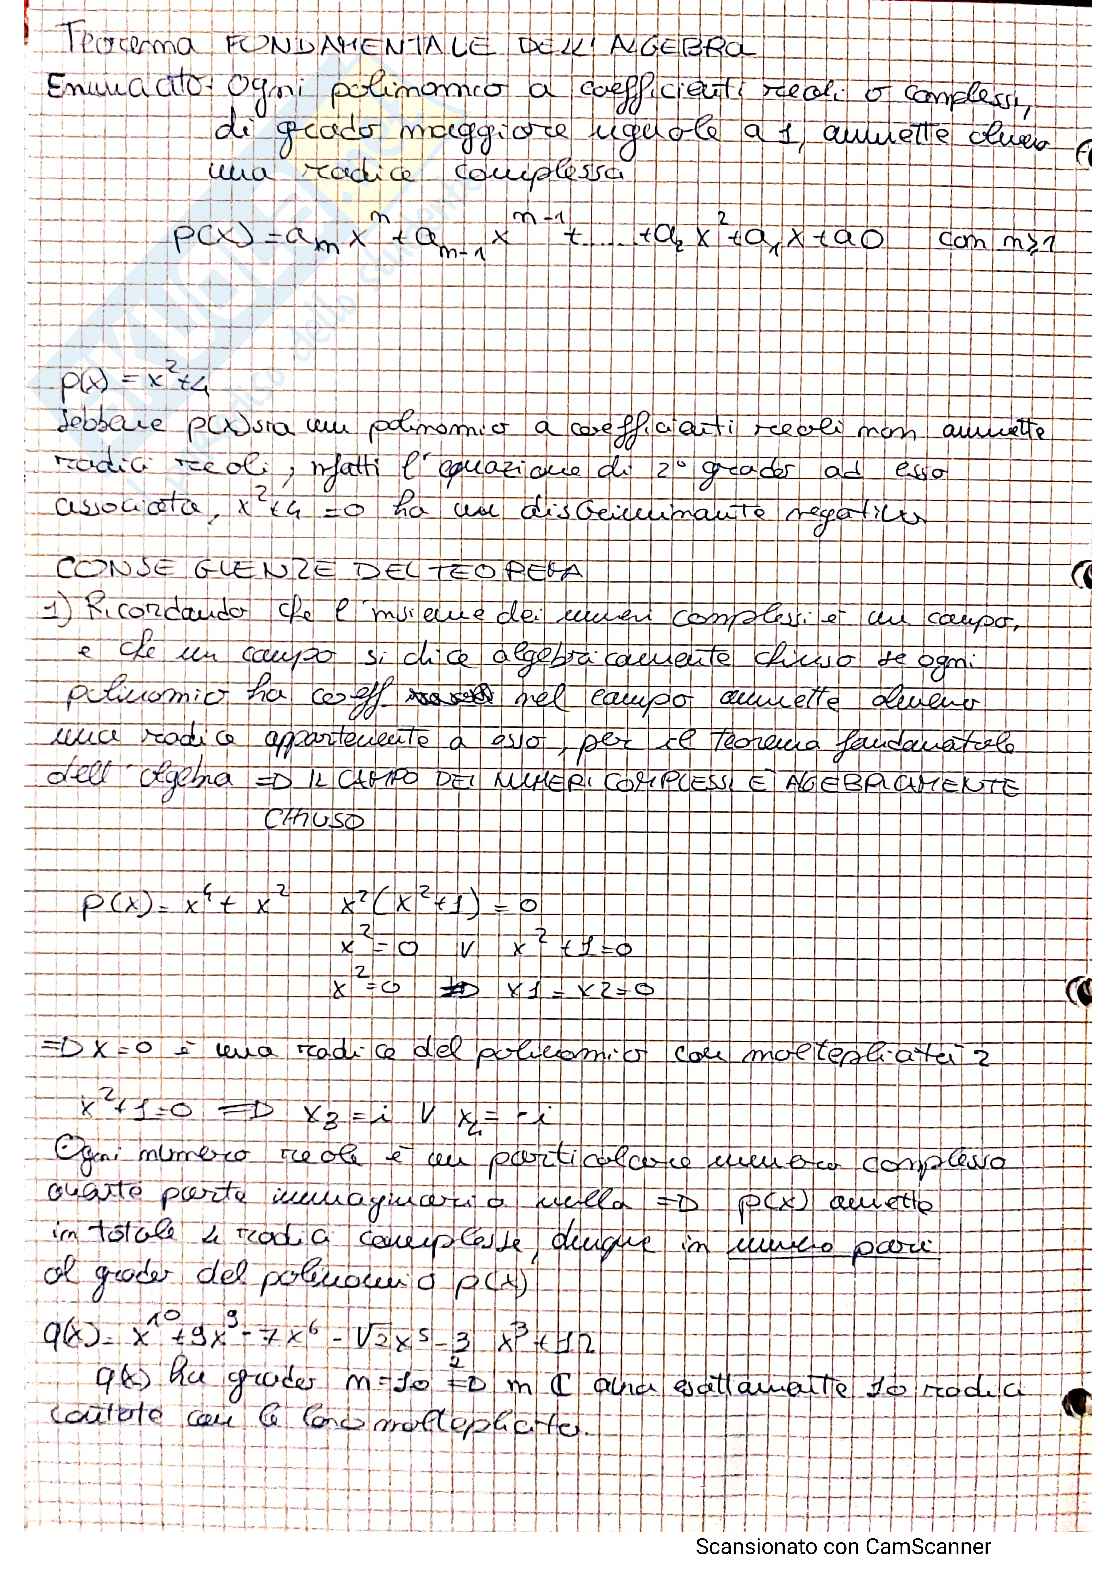 Teorema FONDAMENTALE DELL'ALGEBRA
Enunciato: Ogni polinomio a coefficienti reali o complessi,
di grado maggiore uguale a 1, ammette almeno
una radice complessa
p(x) = a_n x^n + a_{n-1} x^{n-1} + ...... + a_2 x^2 + a_1 x + a0 con n≥1
p(x) = x^2+4
sebbene p(x) sia un polinomio a coefficienti reali non ammette
radici reali, infatti l'equazione di 2° grado ad esso
associata, x^2+4=0 ha un discriminante negativo
CONSEGUENZE DEL TEOREMA
1) Ricordando che l'insieme dei numeri complessi è un campo,
e che un campo si dice algebricamente chiuso se ogni
polinomio ha coeff nel campo ammette almeno
una radice appartenente a esso, per il teorema fondamentale
dell'algebra => IL CAMPO DEI NUMERI COMPLESSI È AGEBRICAMENTE
CHIUSO
p(x) = x^4 + x^2 x^2(x^2+1) = 0
x^2=0 V x^2+1=0
x^2=0 => x1=x2=0
=> x=0 è una radice del polinomio con molteplicità 2
x^2+1=0 => x3=i V x4=-i
Ogni numero reale è un particolare numero complesso
avente parte immaginaria nulla => p(x) ammette
in totale 4 radici complesse, dunque in numero pari
al grado del polinomio p(x)
q(x) = x^10+9x^9-7x^6-√2x^5-3/2 x^3+12
q(x) ha grado n=10 => in C avrà esattamente 10 radici
contate con la loro molteplicità.
Scansionato con CamScanner